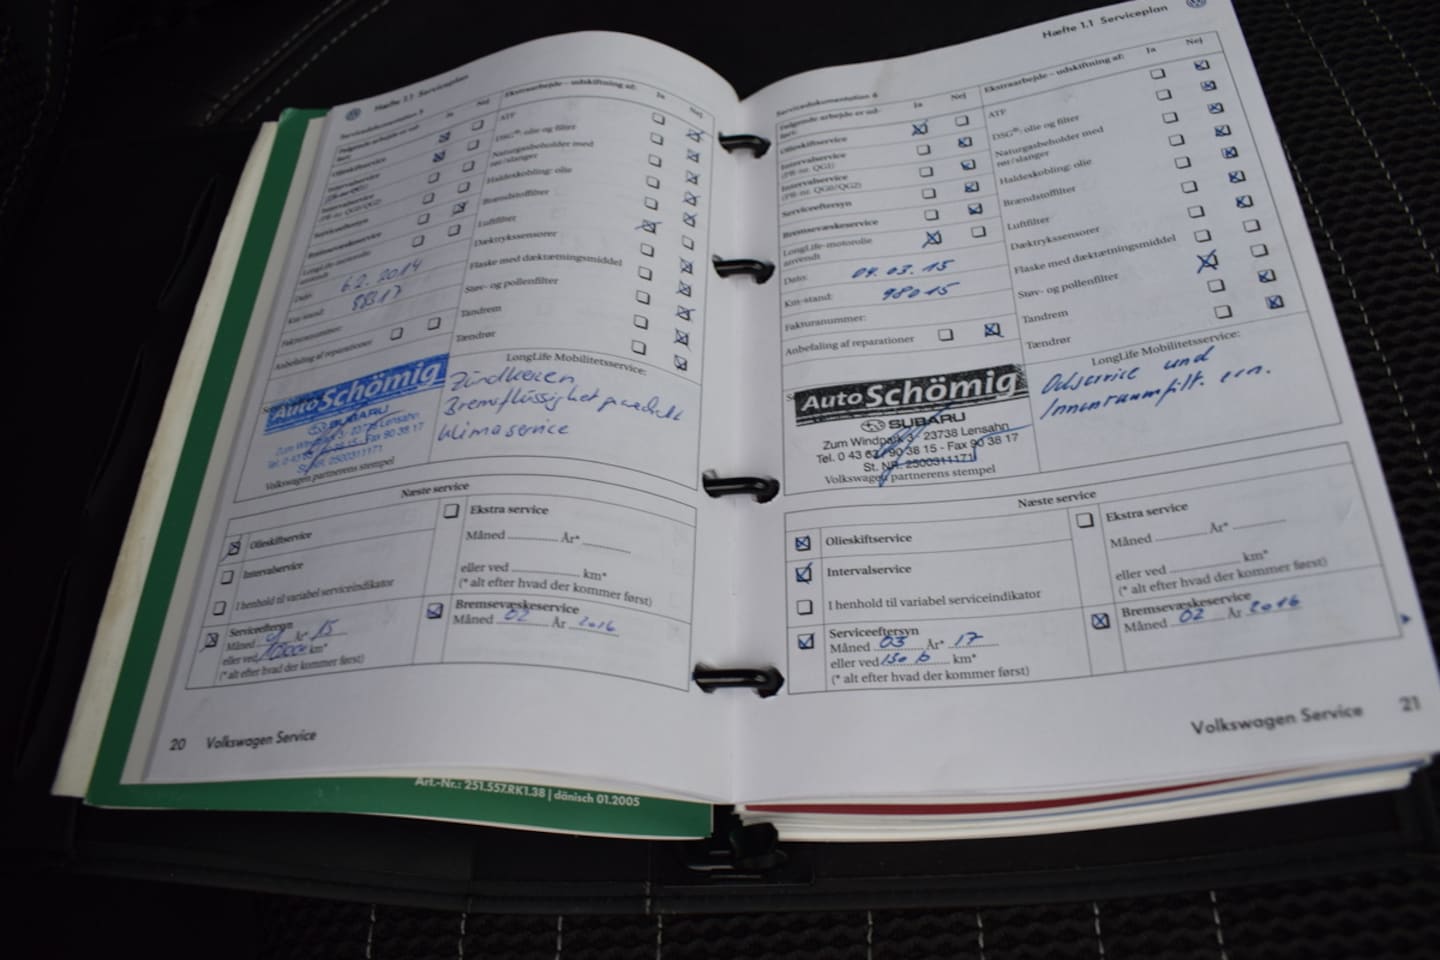 Hæfte 1.1 Serviceplan
Servicedokumentation 5
Følgende arbejde er ud-
ført:
Ja
Nej
Olieskiftservice
Intervalservice
(PR-nr. QG1)
Intervalservice
(PR-nr. QG0/QG2)
Serviceeftersyn
Bremsevæskeservice
LongLife-motorolie
anvendt
Dato: 6.2.2014
Km-stand: 88317
Fakturanummer:
Anbefaling af reparationer
Ekstraarbejde – udskiftning af:
Ja
Nej
ATF
DSG®: olie og filter
Naturgasbeholder med
rør/slanger
Haldeskobling: olie
Brændstoffilter
Luftfilter
Dæktrykssensorer
Flaske med dæktætningsmiddel
Støv- og pollenfilter
Tandrem
Tændrør
LongLife Mobilitetsservice:
Zündkerzen
Bremsflüssigkeit
Klimaservice
Auto Schömig
SUBARU
Zum Windpark 3 · 23738 Lensahn
Tel. 0 43 63 / 90 38 15 - Fax 90 38 17
St. NR. 2500311171
Volkswagen partnerens stempel
Næste service
Olieskiftservice
Intervalservice
I henhold til variabel serviceindikator
Serviceeftersyn
Måned År* 15
eller ved km*
(* alt efter hvad der kommer først)
Ekstra service
Måned År*
eller ved km*
(* alt efter hvad der kommer først)
Bremsevæskeservice
Måned 02 År 2016
20 Volkswagen Service
Art.-Nr.: 251.557.RK1.38 | dänisch 01.2005
Hæfte 1.1 Serviceplan
Servicedokumentation 6
Følgende arbejde er ud-
ført:
Ja
Nej
Olieskiftservice
Intervalservice
(PR-nr. QG1)
Intervalservice
(PR-nr. QG0/QG2)
Serviceeftersyn
Bremsevæskeservice
LongLife-motorolie
anvendt
Dato: 04.03.15
Km-stand: 98015
Fakturanummer:
Anbefaling af reparationer
Ekstraarbejde – udskiftning af:
Ja
Nej
ATF
DSG®: olie og filter
Naturgasbeholder med
rør/slanger
Haldeskobling: olie
Brændstoffilter
Luftfilter
Dæktrykssensorer
Flaske med dæktætningsmiddel
Støv- og pollenfilter
Tandrem
Tændrør
LongLife Mobilitetsservice:
Oelservice und
Innenraumfilt. ern.
Auto Schömig
SUBARU
Zum Windpark 3 · 23738 Lensahn
Tel. 0 43 63 / 90 38 15 - Fax 90 38 17
St. NR. 2500311171
Volkswagen partnerens stempel
Næste service
Olieskiftservice
Intervalservice
I henhold til variabel serviceindikator
Serviceeftersyn
Måned 03 År* 17
eller ved km*
(* alt efter hvad der kommer først)
Ekstra service
Måned År*
eller ved km*
(* alt efter hvad der kommer først)
Bremsevæskeservice
Måned 02 År 2016
Volkswagen Service 21